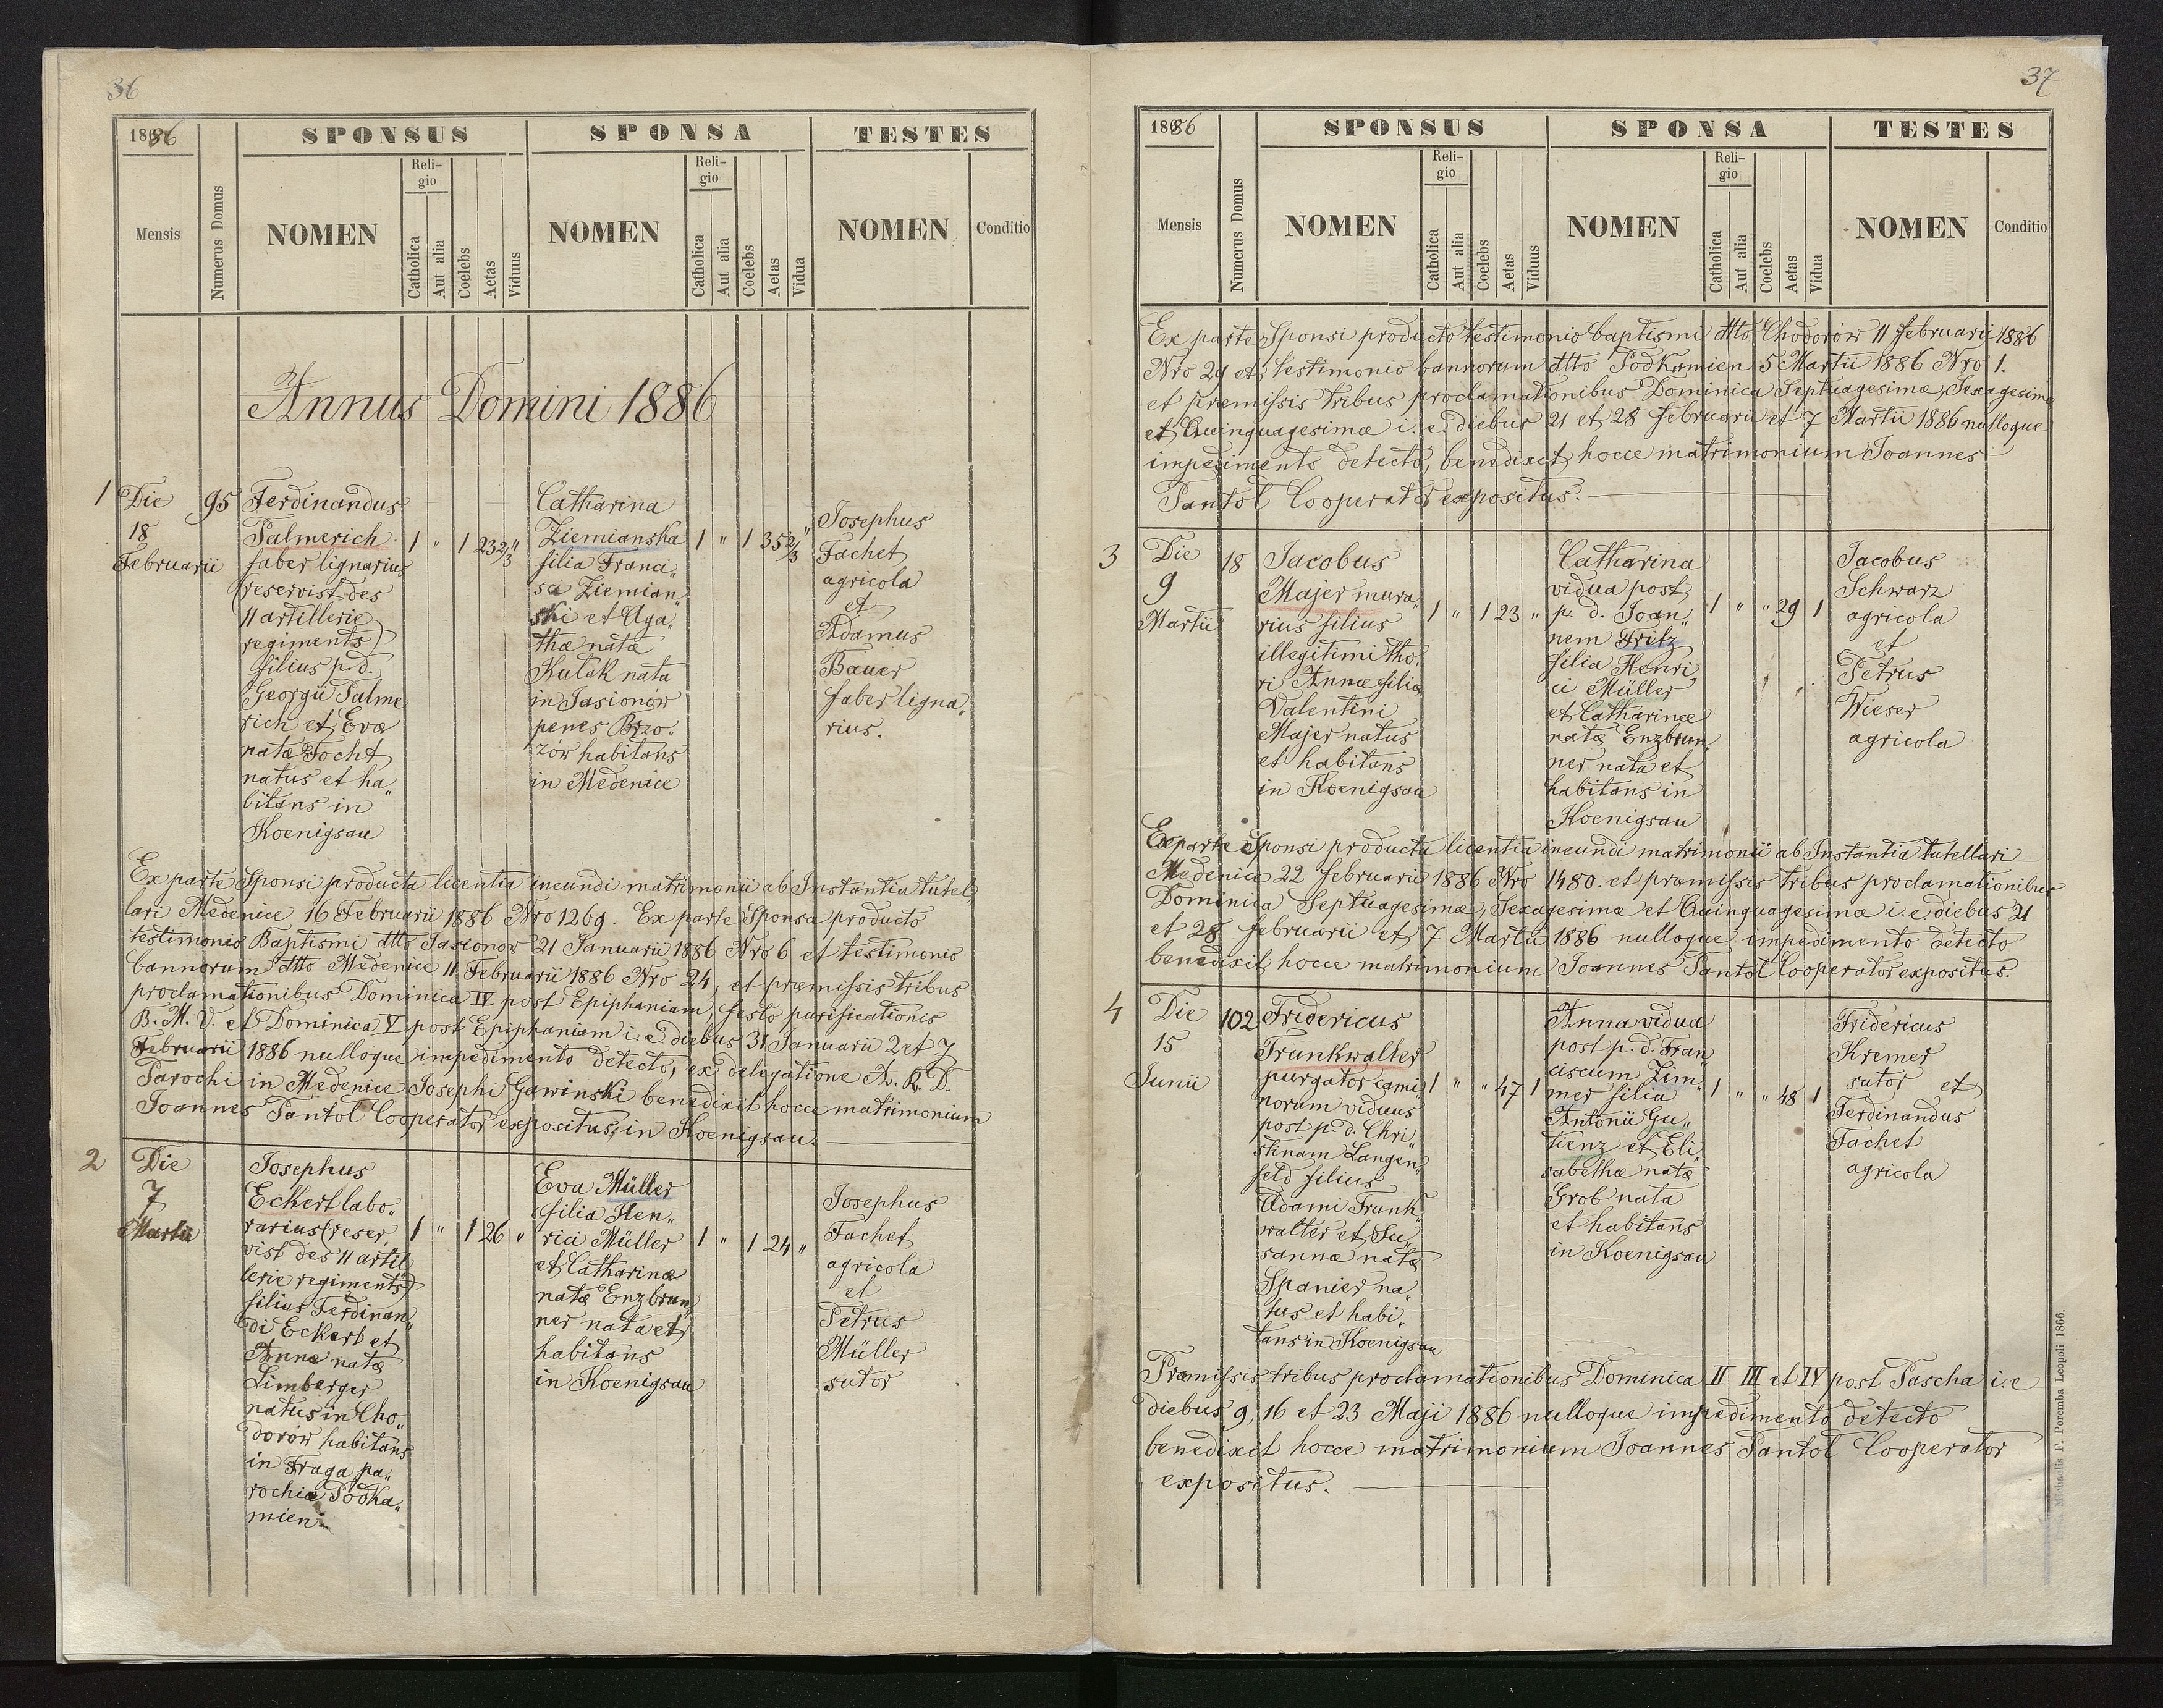 36
1886 SPONSUS SPONSA TESTES
Mensis
Numerus Domus
NOMEN
Reli-
gio
Catholica
Aut alia
Coelebs
Aetas
Viduus
NOMEN
Reli-
gio
Catholica
Aut alia
Coelebs
Aetas
Vidua
NOMEN
Conditio
Annus Domini 1886
1 Die 18 Februarii
95
Ferdinandus
Palmerich
faber lignarius
(reservist des
11 artillerie
regiments)
filius p. d.
Georgii Palme
rich et Evæ
natæ Focht
natus et ha„
bitans in
Koenigsau
1 „ 1 23 2/3 „
Catharina
Ziemianska
filia Franci„
sci Ziemian„
ski et Aga„
thæ natæ
Kulak nata
in Jasionów
penes Brzo„
zów habitans
in Medenice
1 „ 1 35 2/3 „
Josephus
Fachet
agricola
et
Adamus
Bauer
faber ligna„
rius.
Ex parte Sponsi producta licentia ineundi matrimonii ab Instantia tutel„
lari Medenice 16 Februarii 1886 Nro 1269. Ex parte Sponsæ producto
testimonio Baptismi dtto Jasionow 21 Januarii 1886 Nro 6 et testimonio
bannorum dtto Medenice 11 Februarii 1886 Nro 24, et præmissis tribus
proclamationibus Dominica IV post Epiphaniam, festo purificationis
B. M. V. et Dominica V post Epiphaniam i. e. diebus 31 Januarii 2 et 7
Februarii 1886 nulloque impedimento detecto, ex delegatione A. R. D.
Parochi in Medenice Josephi Gawinski benedixit hocce matrimonium
Joannes Pantoł Cooperator expositus in Koenigsau.
2 Die 7 Martii
Josephus
Eckert labo„
rarius (reser„
vist des 11 artil
lerie regiments)
filius Ferdinan„
di Eckert et
Annæ natæ
Limberger
natus in Cho„
dorów habitans
in Fraga pa„
rochiæ Podka„
mien.
1 „ 1 26 „
Eva Müller
filia Hen„
rici Müller
et Catharinæ
natæ Enzbrun„
ner nata et
habitans
in Koenigsau
1 „ 1 24 „
Josephus
Fachet
agricola
et
Petrus
Müller
sutor
37
1886 SPONSUS SPONSA TESTES
Mensis
Numerus Domus
NOMEN
Reli-
gio
Catholica
Aut alia
Coelebs
Aetas
Viduus
NOMEN
Reli-
gio
Catholica
Aut alia
Coelebs
Aetas
Vidua
NOMEN
Conditio
Ex parte Sponsi producto testimonio baptismi dtto Chodorów 11 februarii 1886
Nro 29 et testimonio bannorum dtto Podkamien 5 Martii 1886 Nro 1.
et præmissis tribus proclamationibus Dominica Septuagesimæ, Sexagesimæ
et Quinquagesimæ i. e. diebus 21 et 28 februarii et 7 Martii 1886 nulloque
impedimento detecto, benedixit hocce matrimonium Joannes
Pantoł Cooperator expositus.
3 Die 9 Martii
18
Jacobus
Majer mura„
rius filius
illegitimi tho„
ri Annæ filiæ
Valentini
Majer natus
et habitans
in Koenigsau
1 „ 1 23 „
Catharina
vidua post
p. d. Joan„
nem Fritz
filia Henri„
ci Müller
et Catharinæ
natæ Enzbrun„
ner nata et
habitans in
Koenigsau
1 „ „ 29 1
Jacobus
Schwarz
agricola
et
Petrus
Wieser
agricola
Ex parte Sponsi producta licentia ineundi matrimonii ab Instantia tutellari
Medenice 22 februarii 1886 Nro 1480. et præmissis tribus proclamationibus
Dominica Septuagesimæ, Sexagesimæ et Quinquagesimæ i. e. diebus 21
et 28 februarii et 7 Martii 1886 nulloque impedimento detecto
benedixit hocce matrimonium Joannes Pantoł Cooperator expositus.
4 Die 15 Junii
102
Fridericus
Trunkwalter
purgator cami„
norum viduus
post p. d. Chri„
stinam Langen„
feld filius
Adami Trunk„
walter et Su„
sannæ natæ
Spanier na„
tus et habi„
tans in Koenigsau
1 „ „ 47 1
Anna vidua
post p. d. Fran„
ciscum Zim„
mer filia
Antonii Gu„
tienz et Eli„
sabethæ natæ
Grob nata
et habitans
in Koenigsau
1 „ „ 48 1
Fridericus
Kremer
sutor et
Ferdinandus
Fachet
agricola
Præmissis tribus proclamationibus Dominica II III et IV post Pascha i. e
diebus 9, 16 et 23 Maji 1886 nulloque impedimento detecto
benedixit hocce matrimonium Joannes Pantoł Cooperator
expositus.
Michaelis F. Poremba Leopoli 1866.